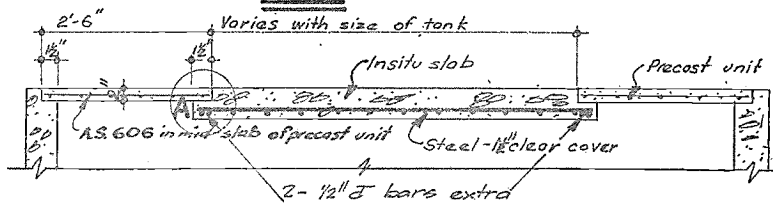 2'-6"
Varies with size of tank
1½"
1½"
Insitu slab
Precast unit
A
A.S. 606 in mid slab of precast unit
Steel-1½" clear cover
2- ½" bars extra